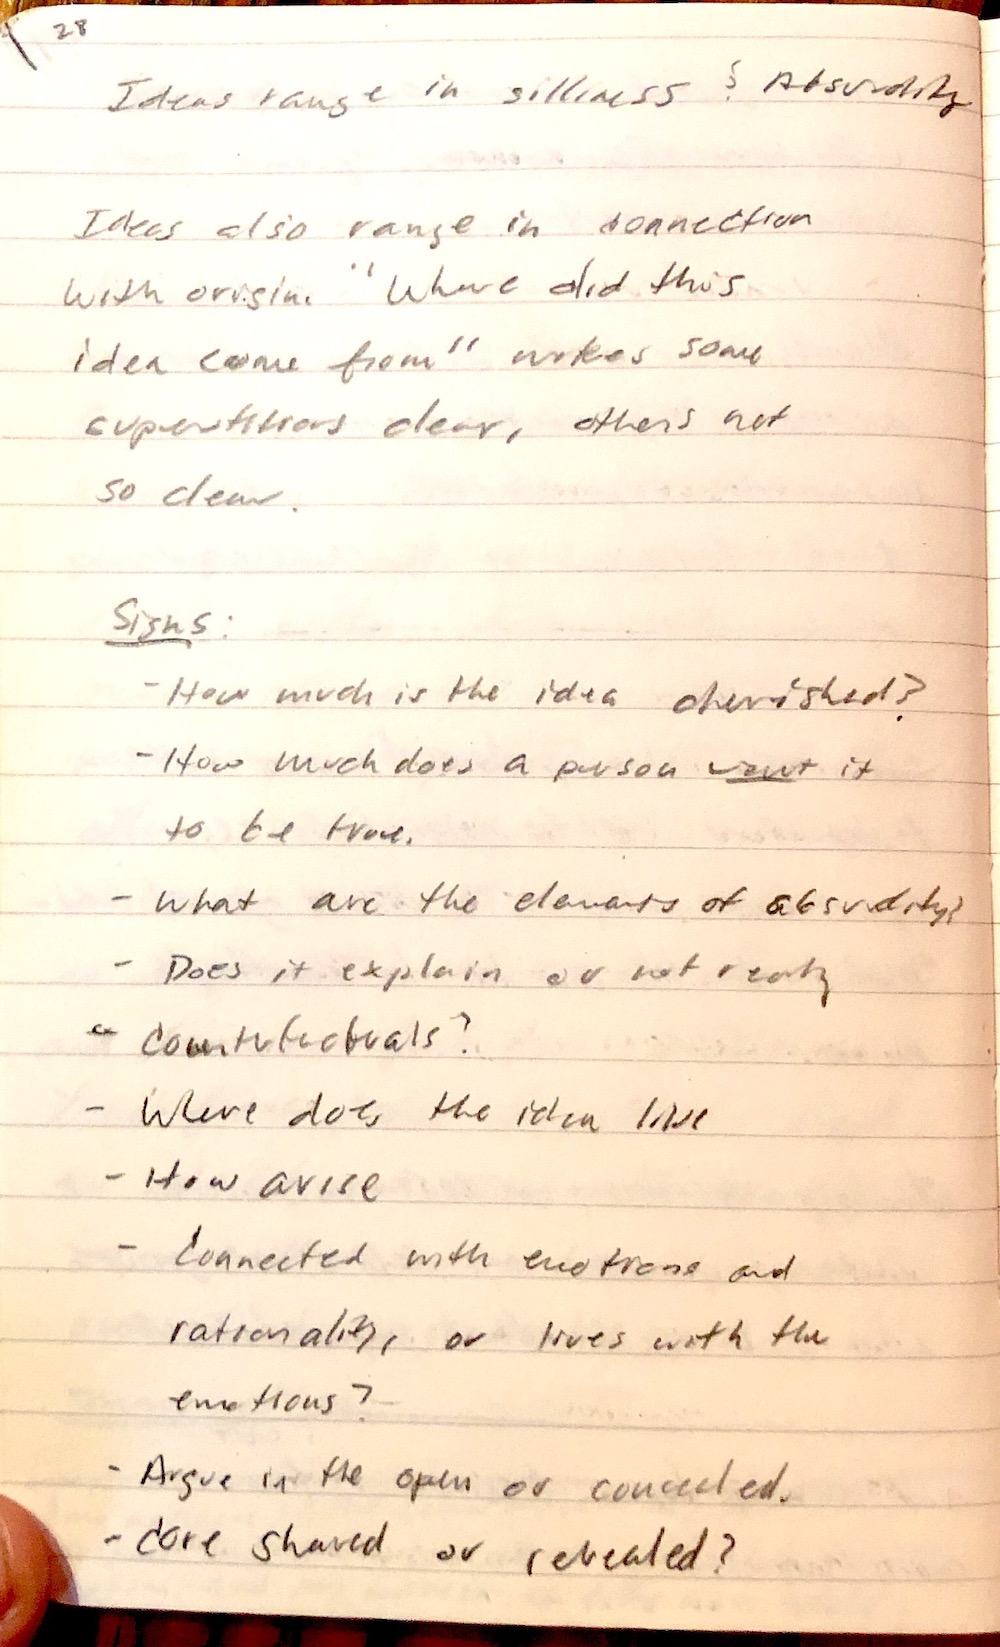 28
Ideas range in silliness & Absurdity
Ideas also range in connection
with origin. "Where did this
idea come from" makes some
superstitions clear, others not
so clear.
Signs:
- How much is the idea cherished?
- How much does a person want it
to be true.
- What are the elements of absurdity?
- Does it explain or not really
- Counterfactuals?
- Where does the idea live
- How arise
- Connected with emotions and
rationality, or lives with the
emotions?
- Argue in the open or concealed.
- Core shared or revealed?